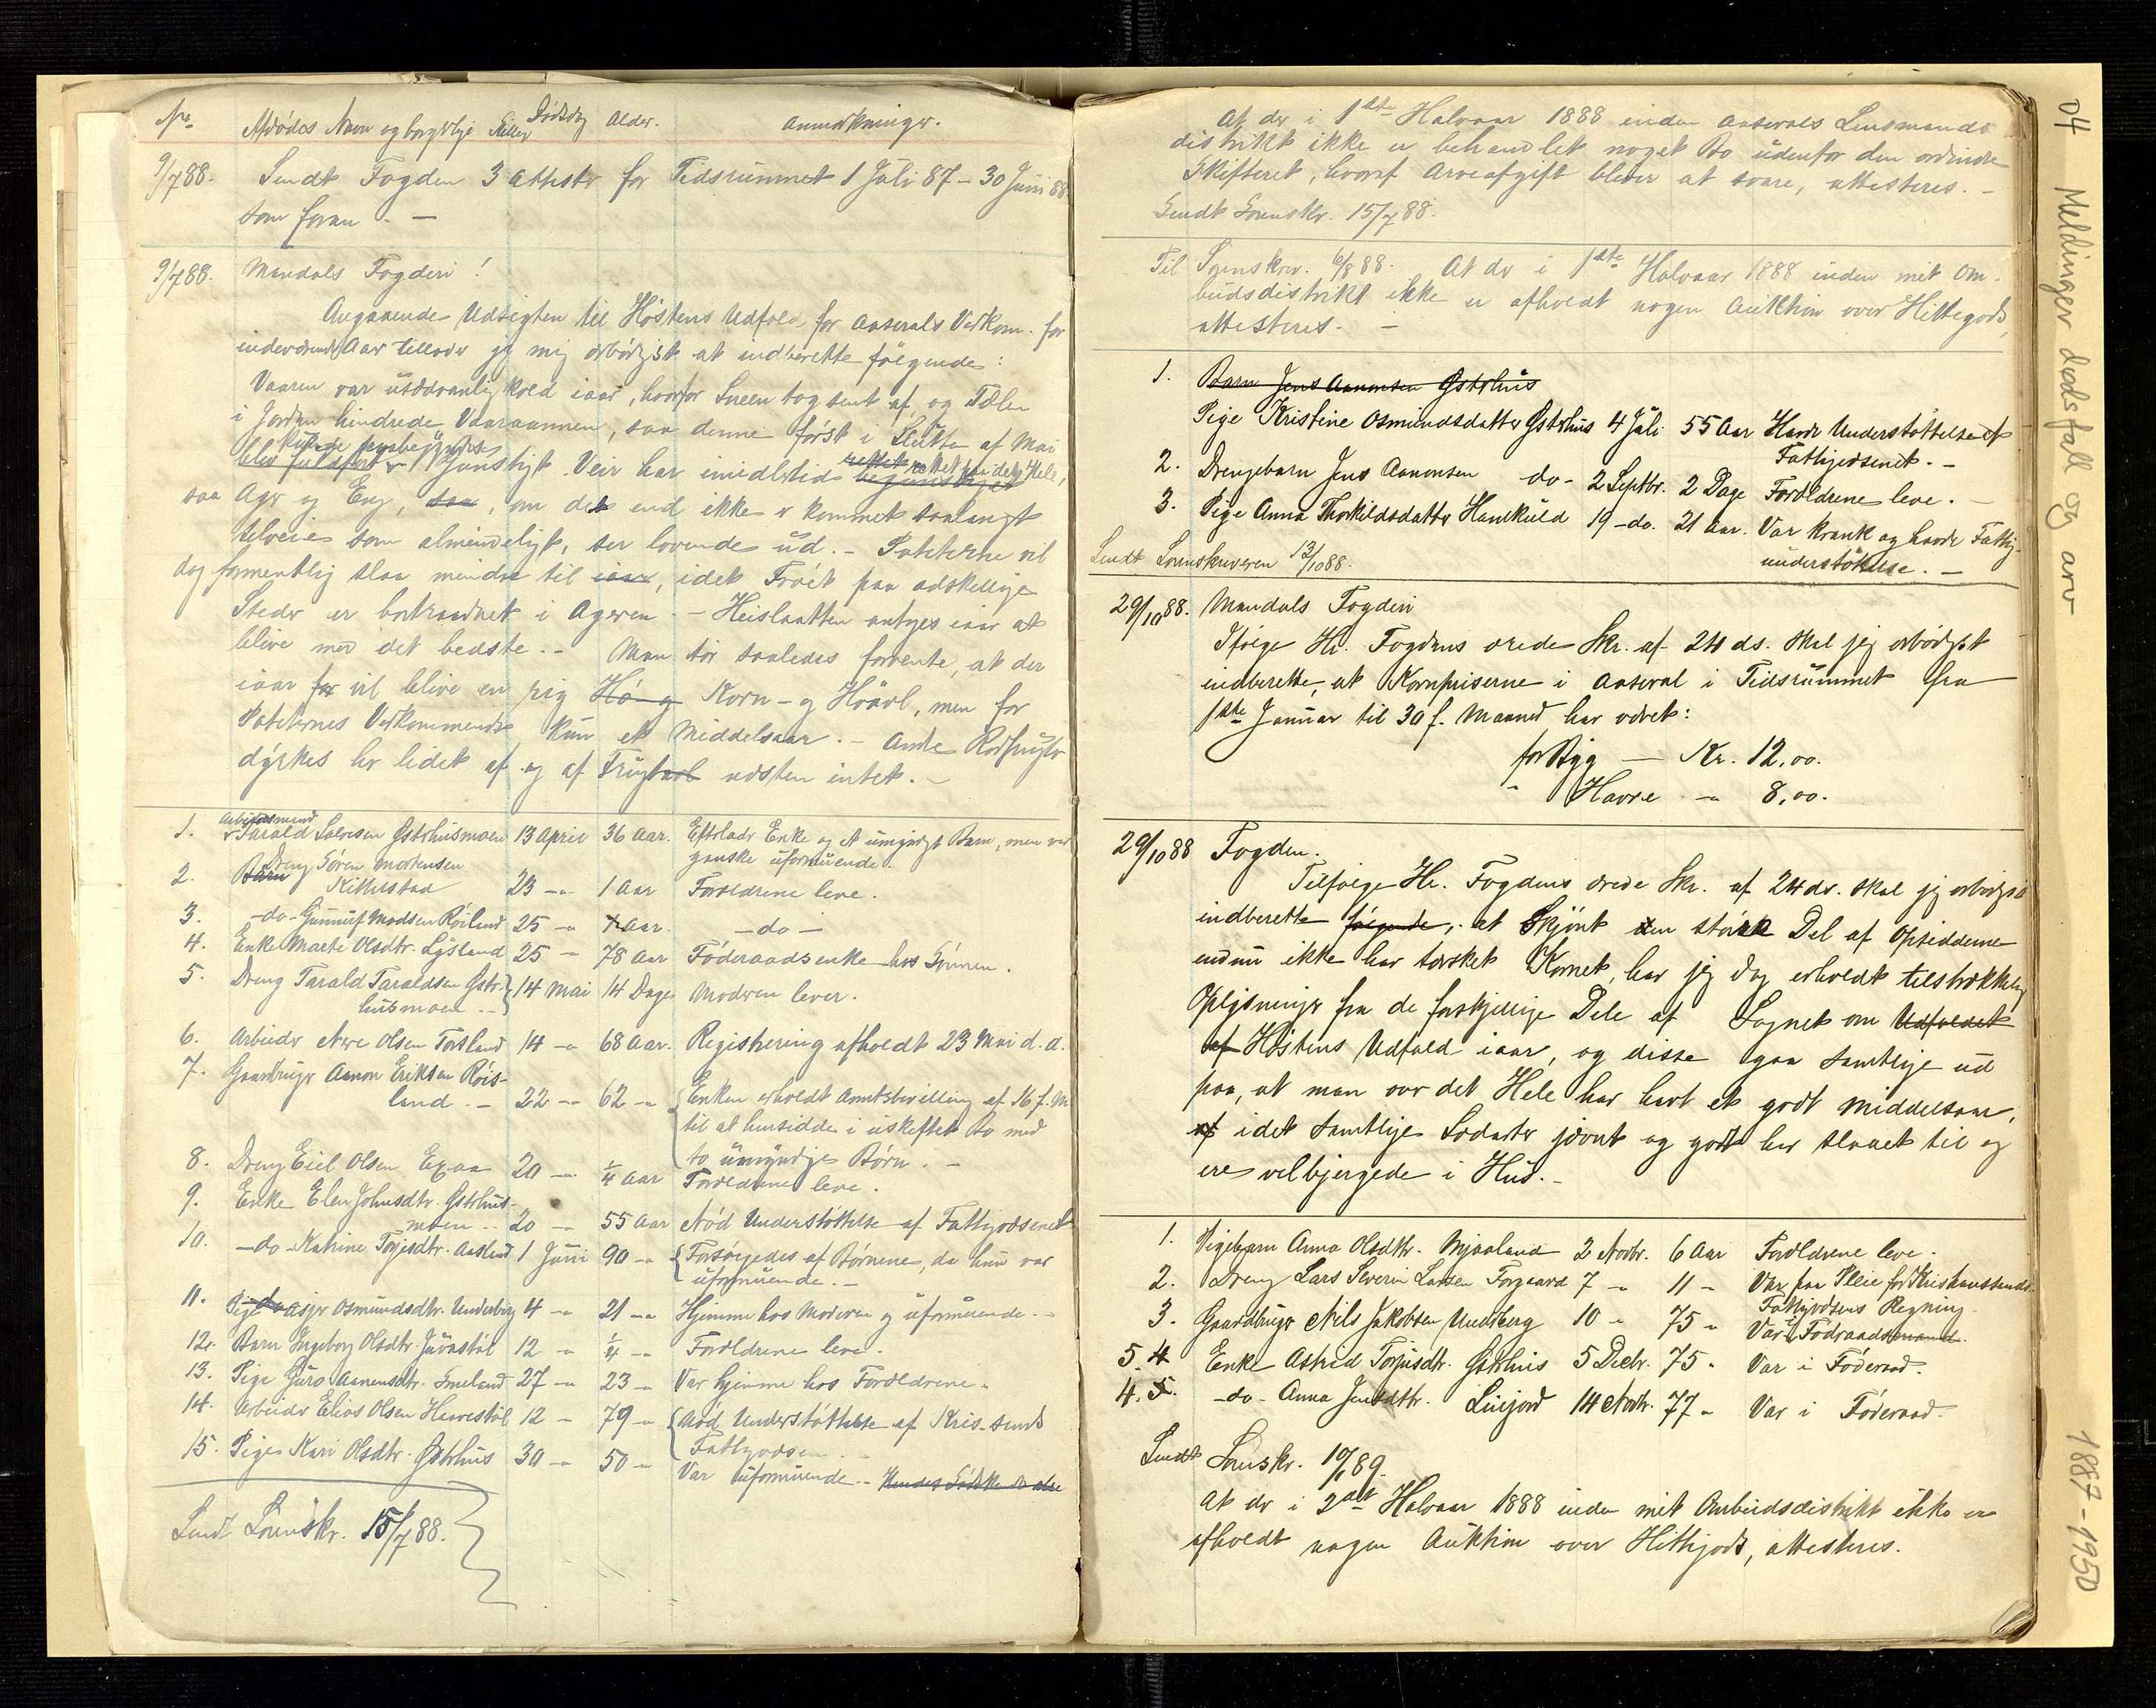 No. Afdødes Navn og borgerlige Stilling Dødsdag Alder. Anmærkninger.
9/7 88. Sendt Fogden 3 Attester for Tidsrummet 1 Juli 87 - 30 Juni 88
som foran. —
9/7 88. Mandals Fogderi!
Angaaende Udsigten til Høstens Udfald for Aaserals Vedkom. for
indeværende Aar tillader jeg mig ærbødigst at indberette følgende:
Vaaren var usædvanlig kold iaar, hvorfor Sneen tog sent af, og Tælen
i Jorden hindrede Vaaraannen, saa denne først i Slutten af Mai
kunde paabegyndes
blev fuldført. Gunstigt Veir har imidlertid begunstiget
saa Ager og Eng, saa, om det end ikke er kommet saalangt
tilveies som almindeligt, ser lovende ud. - Poteterne vil
dog formentlig slaa mindre til iaar, idet Frøet paa adskillige
Steder er bortraadnet i Ageren. - Høislaatten antages iaar at
blive med det bedste. - Man tør saaledes forvente, at der
iaar før vil blive en rig Hø- og Korn- og Høavl, men for
Poteternes Vedkommende kun et Middelsaar. - Andre Rodfrugter
dyrkes her lidet af og af Frugtavl næsten intet. -
1. Arbeidsmand Tarald Salvesen Gstrhusmoen 13 April 36 Aar. Efterlader Enke og et umyndigt Barn, men var
ganske uformuende.
2. Barn Dreng Søren Mortensen
Kittelstad 23 -"- 1 Aar Forældrene leve.
3. -do- Gunnuf Madsen Røiland 25 -"- Aar. -do-
4. Enke Marte Olsdtr. Lysland 25 -"- 78 Aar Føderaadsenke hos Sønnen.
5. Dreng Tarald Taraldsen Gstr-
husmoen - 14 Mai 14 Dage Moderen lever.
6. Arbeider Aere Olsen Torsland 14 -"- 68 Aar. Registrering afholdt 23 Mai d.a.
7. Gaardbruger Aanon Eriksen Røis-
land. - 22 -"- 62 -"- Enken erholdt Amtsbevilling af 16 f.M.
til at hensidde i uskiftet Bo med
to umyndige Børn. -
8. Dreng Eiel Olsen Egaa 20 -"- 1/4 Aar Forældrene leve.
9. Enke Elen Johnsdtr. Gstrhus-
moen - 20 -"- 55 Aar Nød Understøttelse af Fattigvæsenet
10. -do- Katrine Torjesdtr. Aasland 1 Juni 90 -"- Forsørgedes af Børnene, da hun var
uformuende. -
11. Pige -do- Asger Osmundsdtr. Underberg 4 -"- 21 -"- Hjemme hos Moderen og uformuende. -
12. Barn Ingeborg Olsdtr. Juvastøl 12 -"- 1/4 -"- Forældrene leve.
13. Pige Guro Aanensdtr. Smeland 27 -"- 23 -"- Var hjemme hos Forældrene.
14. Arbeider Elias Olsen Haavestøl 12 - 79 -"- Nød Understøttelse af Kris.sands
Fattigvæsen.
15. Pige Kari Olsdtr. Gstrhus 30 -"- 50 -"- Var uformuende. - Hendes
Sendt Sorenskr. 15/7 88.
At der i 1ste Halvaar 1888 inden Aaserals Lensmands
distrikt ikke er behandlet noget Bo udenfor den ordinære
Skifteret, hvoraf Arveafgift bliver at svare, attesteres. -
Sendt Sorenskr. 15/7 88.
Til Sorenskrev. 6/8 88. At der i 1ste Halvaar 1888 inden mit Om-
budsdistrikt ikke er afholdt nogen Auktion over Hittegods,
attesteres. -
1. Barn Jens Aanonsen Gstrhus
Pige Kristine Osmundsdatter Gstrhus 4 Juli 55 Aar Havde Understøttelse af
Fattigvæsenet. -
2. Drengebarn Jens Aanonsen do- 2 Septbr. 2 Dage Forældrene leve. -
3. Pige Anna Thorkildsdatter Haukuld 19 -do. 21 Aar. Var krank og havde Fattig-
understøttelse. -
Sendt Sorenskriveren 13/10 88.
29/10 88. Mandals Fogderi
Ifølge Hr. Fogdens ærede Skr. af 24 ds. skal jeg ærbødigst
indberette, at Kornpriserne i Aaseral i Tidsrummet fra
1ste Januar til 30 f. Maaned har været:
for Byg — Kr. 12,00.
" Havre -"- 8,00.
29/10 88 Fogden.
Ifølge Hr. Fogdens ærede Skr. af 24 ds. skal jeg ærbødigst
indberette følgende, at skjønt en større Del af Opsidderne
endnu ikke har tærsket Kornet, har jeg dog erholdt tilstrækkelig
Oplysninger fra de forskjellige Dele af Sognet om Udfaldet
af Høstens Udfald iaar, og disse gaa samtlige ud
paa, at man over det Hele har havt et godt Middelsaar,
af idet samtlige Sædarter jævnt og godt har slaaet til og
ere velbjergede i Hus. -
1. Pigebarn Anna Olsdtr. Mjaaland 2 Novbr. 6 Aar Forældrene leve.
2. Dreng Lars Severin Larsen Torgaard 7 -"- 11 - Var paa Pleie for Kristianssands
Fattigvæsens Regning.
3. Gaardbruger Nils Jakobsen Underberg 10 - 75 - Var i Føderaadsmand.
5. 4 Enke Astrid Torjusdtr. Gstrhus 5 Decbr. 75 - Var i Føderaad.
4. 5. -do- Anna Jensdtr. Liujord 14 Novbr. 77 - Var i Føderaad.
Sendt Sorenskr. 10/1 89.
At der i 2det Halvaar 1888 inden mit Ombudsdistrikt ikke er
afholdt nogen Auktion over Hittegods, attesteres.
04 Meldinger dødsfall og arv 1887-1950